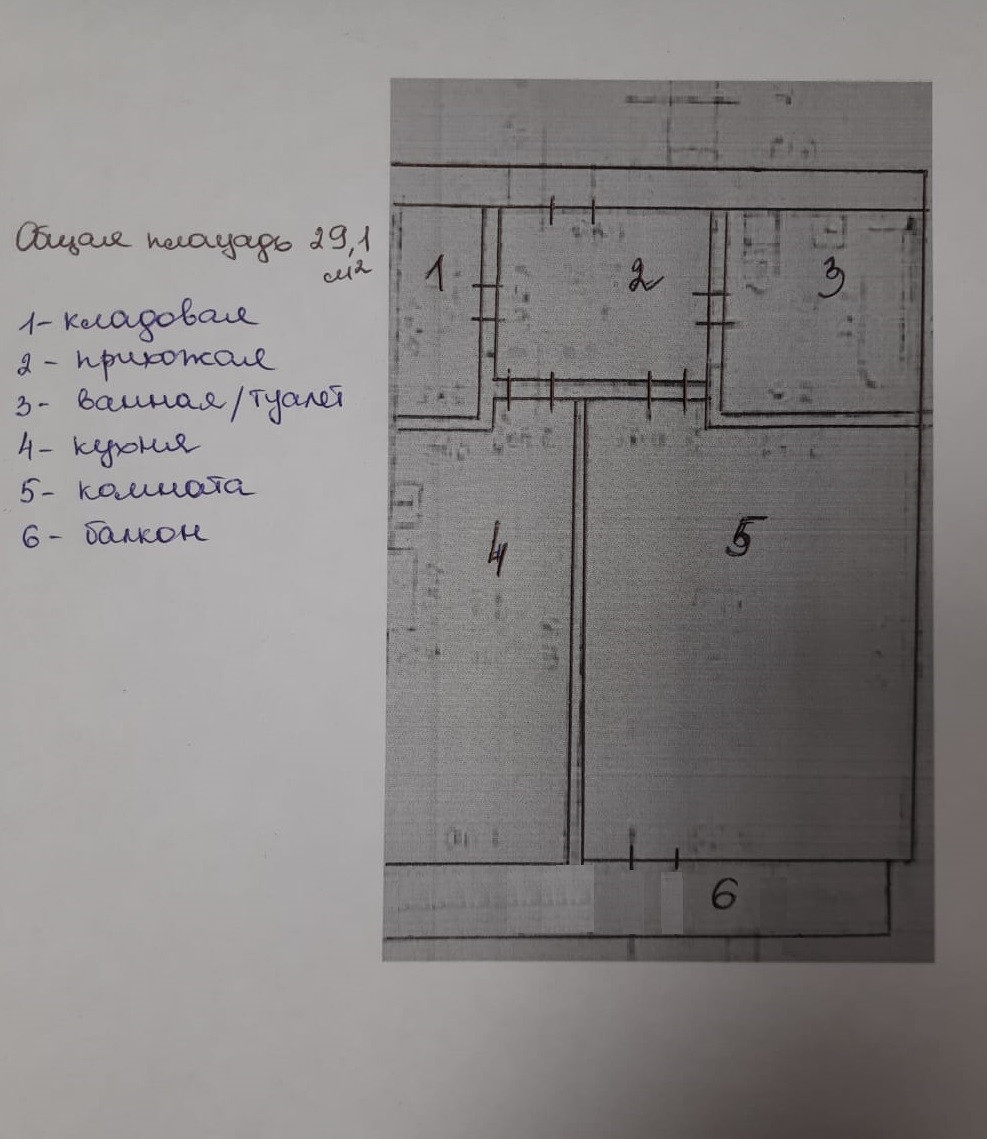 Общая площадь 29,1
м²
1- кладовая
2 - прихожая
3- ванная/туалет
4- кухня
5- комната
6- балкон
1
2
3
4
5
6